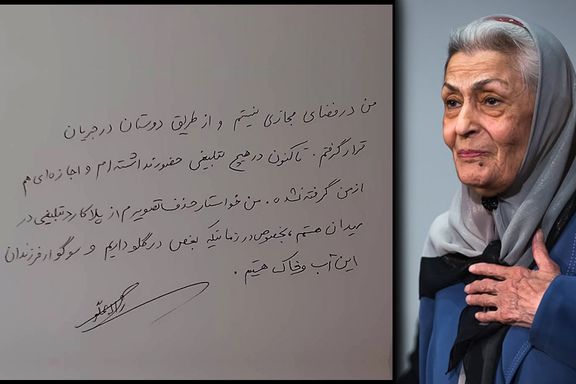 من در فضای مجازی نیستم و از طریق دوستان در جریان
قرار گرفتم. تاکنون در هیچ تبلیغی حضور نداشته‌ام و اجازه‌ای هم
از من گرفته نشده. من خواستار حذف تصویرم از پلاکارد تبلیغی در
میدان هستم، بخصوص در زمانیکه بغض در گلو داریم و سوگوار فرزندان
این آب و خاک هستیم.